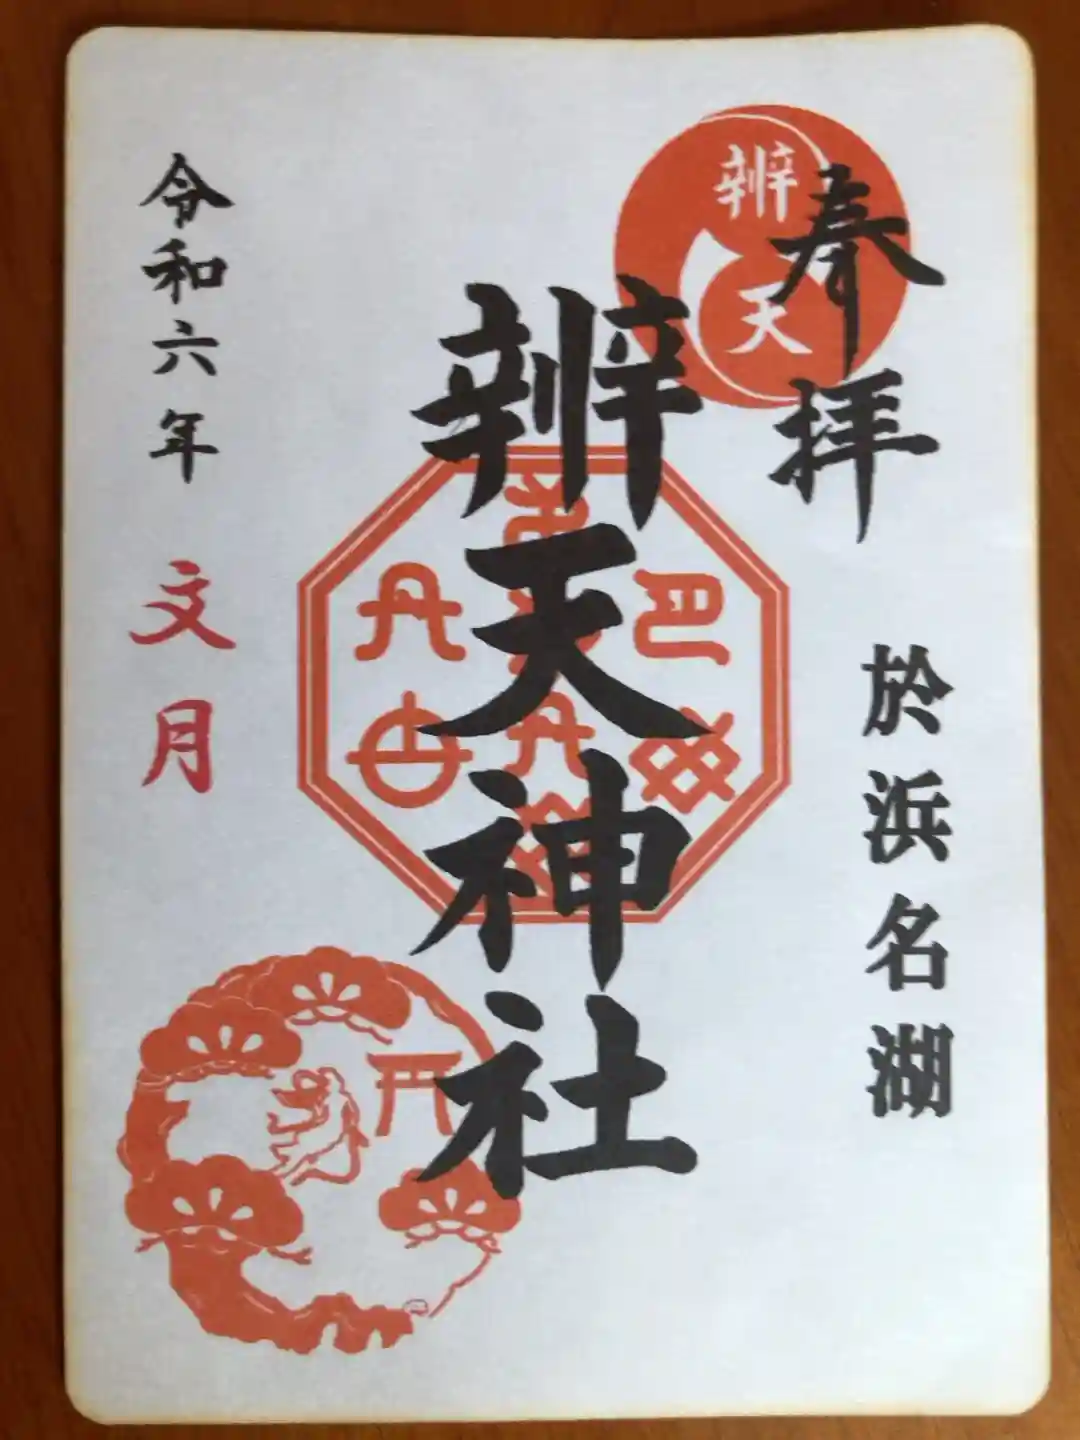 奉拝
辨天
於浜名湖
辨天神社
令和六年
文月